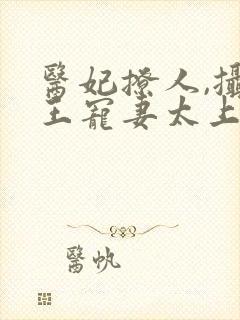 醫妃撩人,攝
王寵妻太上
醫帆